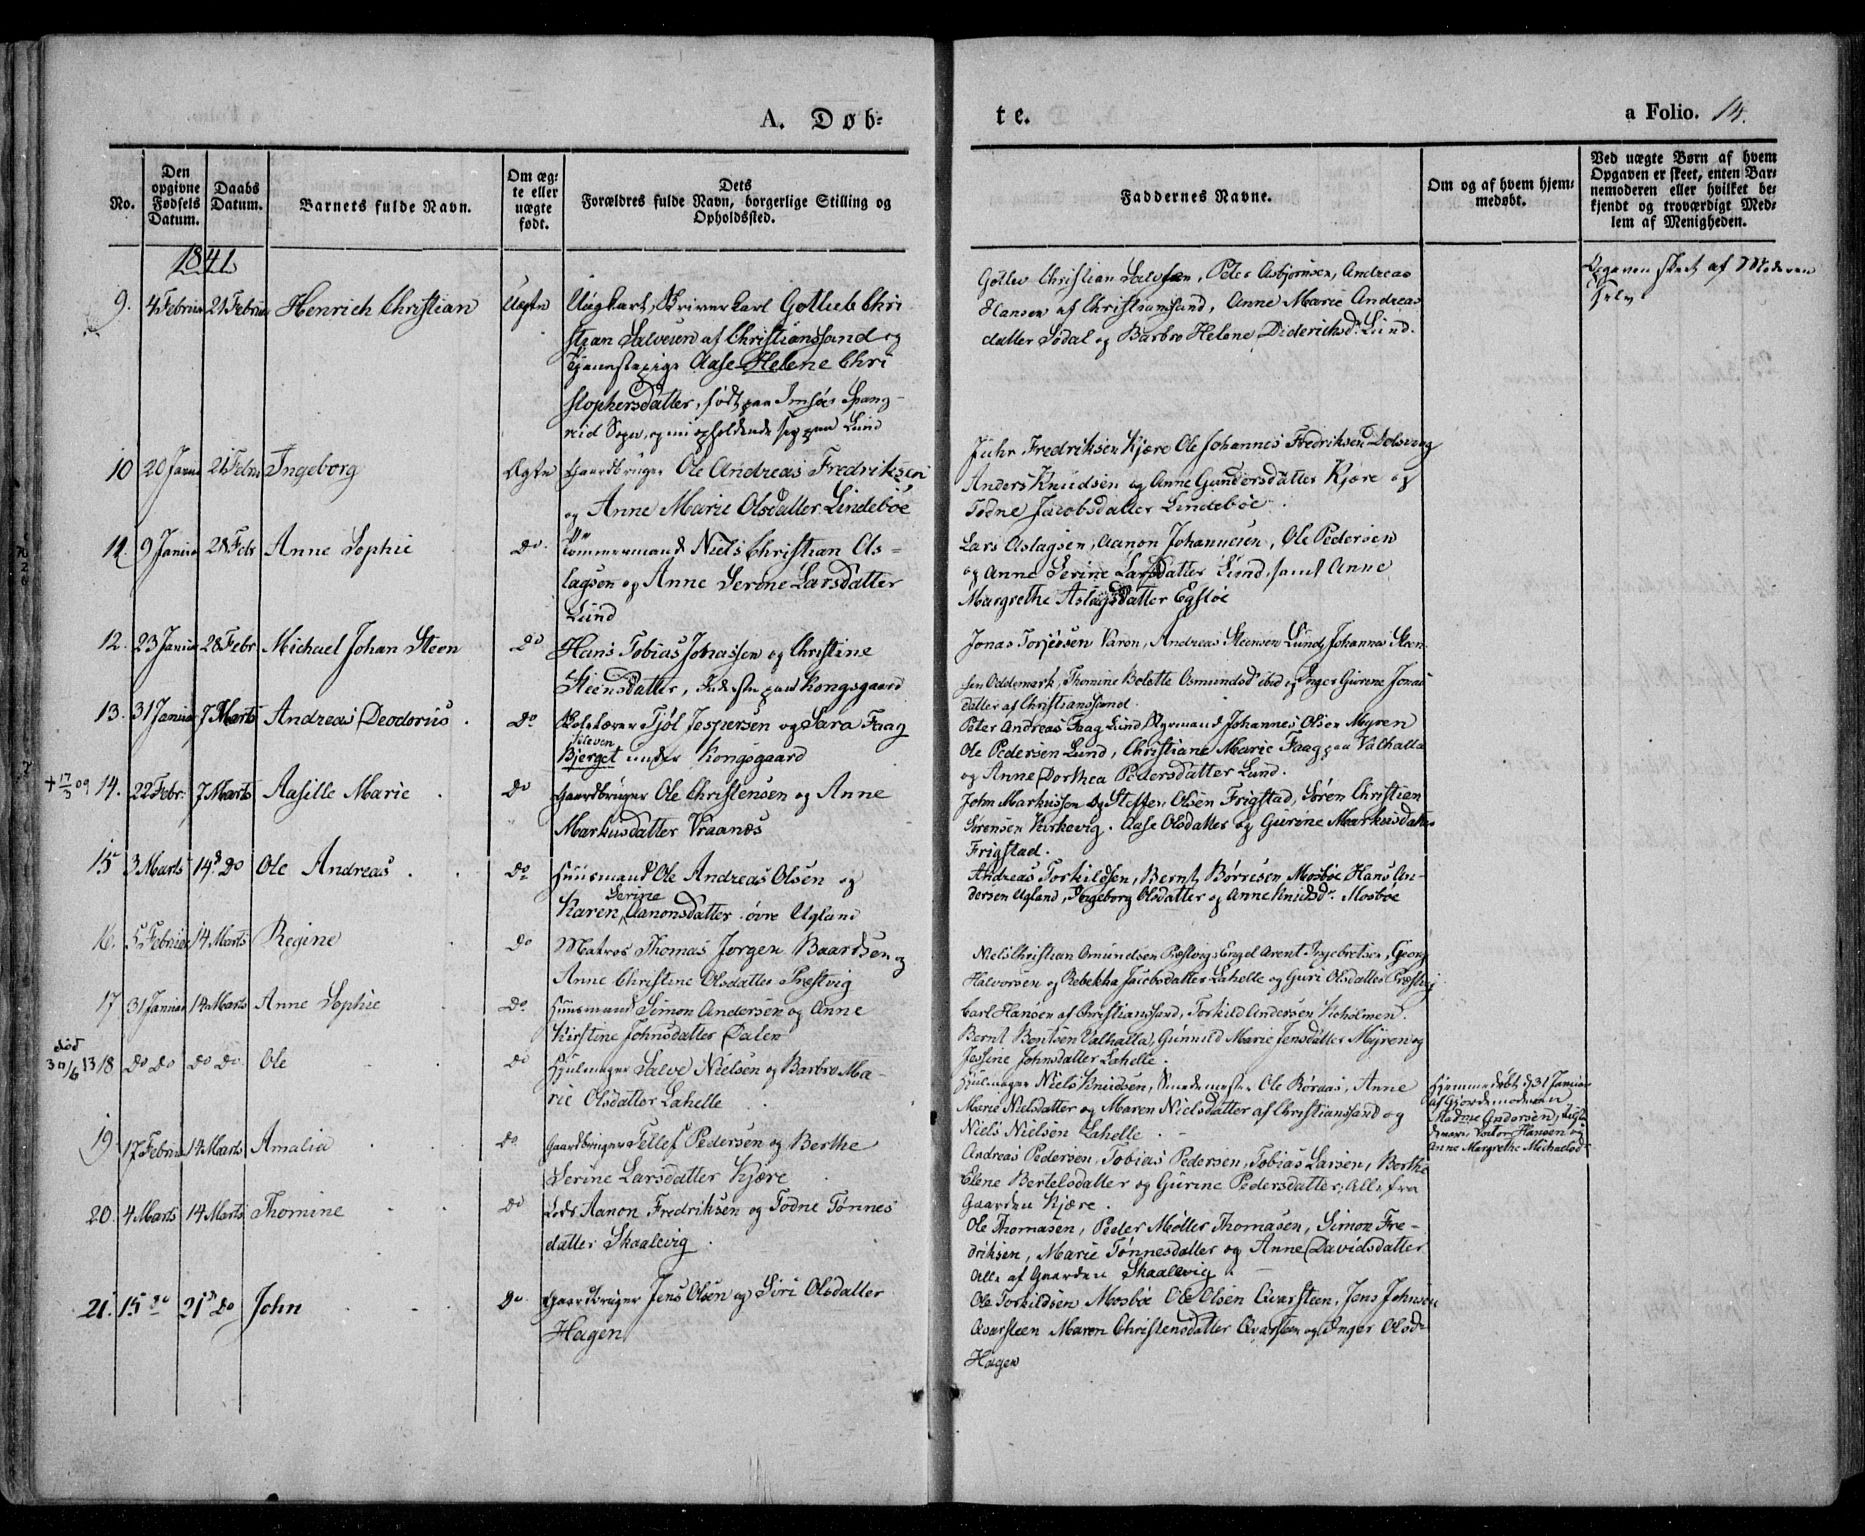 A. Døb-
te.
a Folio. 14.
No.
Den opgivne Fødsels Datum.
Daabs Datum.
Barnets fulde Navn.
Om ægte eller uægte født.
Dets Forældres fulde Navn, borgerlige Stilling og Opholdssted.
Faddernes Navne.
Om og af hvem hjemmedøbt.
Ved uægte Børn af hvem Opgaven er skeet, enten Barnemoderen eller hvilket bekjendt og troværdigt Medlem af Menigheden.
1841
9. 4 Februar 21 Februar Henrich Christian Uægte Ungkarl, Skriver Carl Gotlieb Chri
stian Salvesen af Christianssand og
Tjenestepige Aase Helene Chri
stophersdatter, født paa
Sogn, og nu opholdende sig paa Lund
Gotlieb Christian Salvesen, Peter Asbjørnsen, Andreas
Hansen af Christianssand, Anne Marie Andreas
datter Sødal og Barbro Helene Dideriksd. Lund.
Opgaven skeet af Moderen
selv
10 20 Janua 21 Febru Ingeborg Ægte Gaardbruger Ole Andreas Fredriksen
og Anne Marie Olsdatter Lindebøe
Fredriksen Kjære Ole Johannes Fredriksen Dolsveg
Anders Knudsen og Anne Gundersdatter Kjære og
Todne Jacobsdatter Lindebøe.
11 9 Januar 28 Febr Anne Sophie do. Tømmermand Niels Christian As-
lagsen og Anne Serine Larsdatter
Lund
Lars Aslagsen, Aanon Johannesen, Ole Pedersen
og Anne Serine Larsdatter Lund, samt Anne
Margrethe Aslagsdatter Egsløe
12. 23 Januar 28 Febr Michael Johan Steen do Hans Tobias Jonassen og Christine
Steensdatter, Inderste paa Kongsgaard
Jonas Torjersen Varon, Andreas Steensen Lund, Johannes Steen-
sen Oddemark, Thomine Bolette Osmundsd ibid og Inger Gurine Jonas
datter af Christianssand.
13. 31 Januar 7 Marts Andreas Deodorus. do Skolelærer Tjøl Jespersen og Sara Faag
Bjerget under Kongsgaard
Peter Andreas Faag Lund Styrmand Johannes Olsen Myren
Ole Pedersen Lund, Christiane Marie Faag paa Valhalla
og Anne Dorthea Pedersdatter Lund.
+ 17/3 09 14. 22 Febr. 7 Marts Aasille Marie do Gaardbruger Ole Christensen og Anne
Markusdatter Vraanes
John Markussen og Steffen Olsen Frigstad, Søren Christian
Sørensen Kirkevig. Aase Olsdatter og Gurine Markusdatter
Frigstad.
15 3 Marts 14 do Ole Andreas do Huusmand Ole Andreas Olsen og
Karen Serine Aanonsdatter øvre Ugland
Andreas Torkildsen, Bernt Børresen Mosbøe Hans An-
dersen Ugland, Ingeborg Olsdatter og Anne Knudsd. Mosbøe
16. 5 Februar 14 Marts Regine do Matros Thomas Jørgen Baardsen og
Anne Christine Olsdatter Præstvig
Niels Christian Omundsen Præstvig, Engel Arent Ingebretsen, Georg
Halvorsen og Rebekka Jacobsdatter Lahelle og Guri Olsdatter Præstvig
17 31 Januar 14 Marts Anne Sophie do Huusmand Simon Andersen og Anne
Kirstine Johnsdatter Dalen
Carl Hansen af Christianssand, Torkild Andersen Vigholmen.
Bernt Bentsen Valhalla, Gunnild Marie Jensdatter Myren og
Jessine Johnsdatter Lahelle.
død
30/6 13
18 do do do do Ole do Hjulmager Salve Nielsen og Barbro Ma-
rie Olsdatter Lahelle
Hjulmager Niels Knudsen, Smedemester Ole Røraas, Anne
Marie Nielsdatter og Maren Nielsdatter af Christianssand og
Niels Nielsen Lahelle.
Hjemmedøbt d 31 Januar
af Gjordemoderen
Madme Andersen,
Hansen og
Anne Margrethe Michaelsd
19 17 Februa 14 Marts Amalia do. Gaardbruger Tellef Pedersen og Berthe
Serine Larsdatter Kjære
Andreas Pedersen, Tobias Pedersen, Tobias Larsen, Berthe
Elene Bertelsdatter og Gurine Pedersdatter, Alle fra
Gaarden Kjære.
20. 4 Marts 14 Marts Thomine do Lods Aanon Fredriksen og Todne Tønnes
datter Skaalevig.
Ole Thomasen, Peder Møller Thomasen, Simon Fre-
driksen, Marie Tønnesdatter og Anne Davidsdatter
Alle af Gaarden Skaalevig.
21. 15 do 21 do John do. Gaardbruger Jens Olsen og Siri Olsdatter
Hagen
Ole Torkildsen Mosbøe Ole Olsen Qvarsteen, Jens Johnsen
Qvarsteen Maren Christensdatter Qvarsteen og Inger Olsd
Hagen